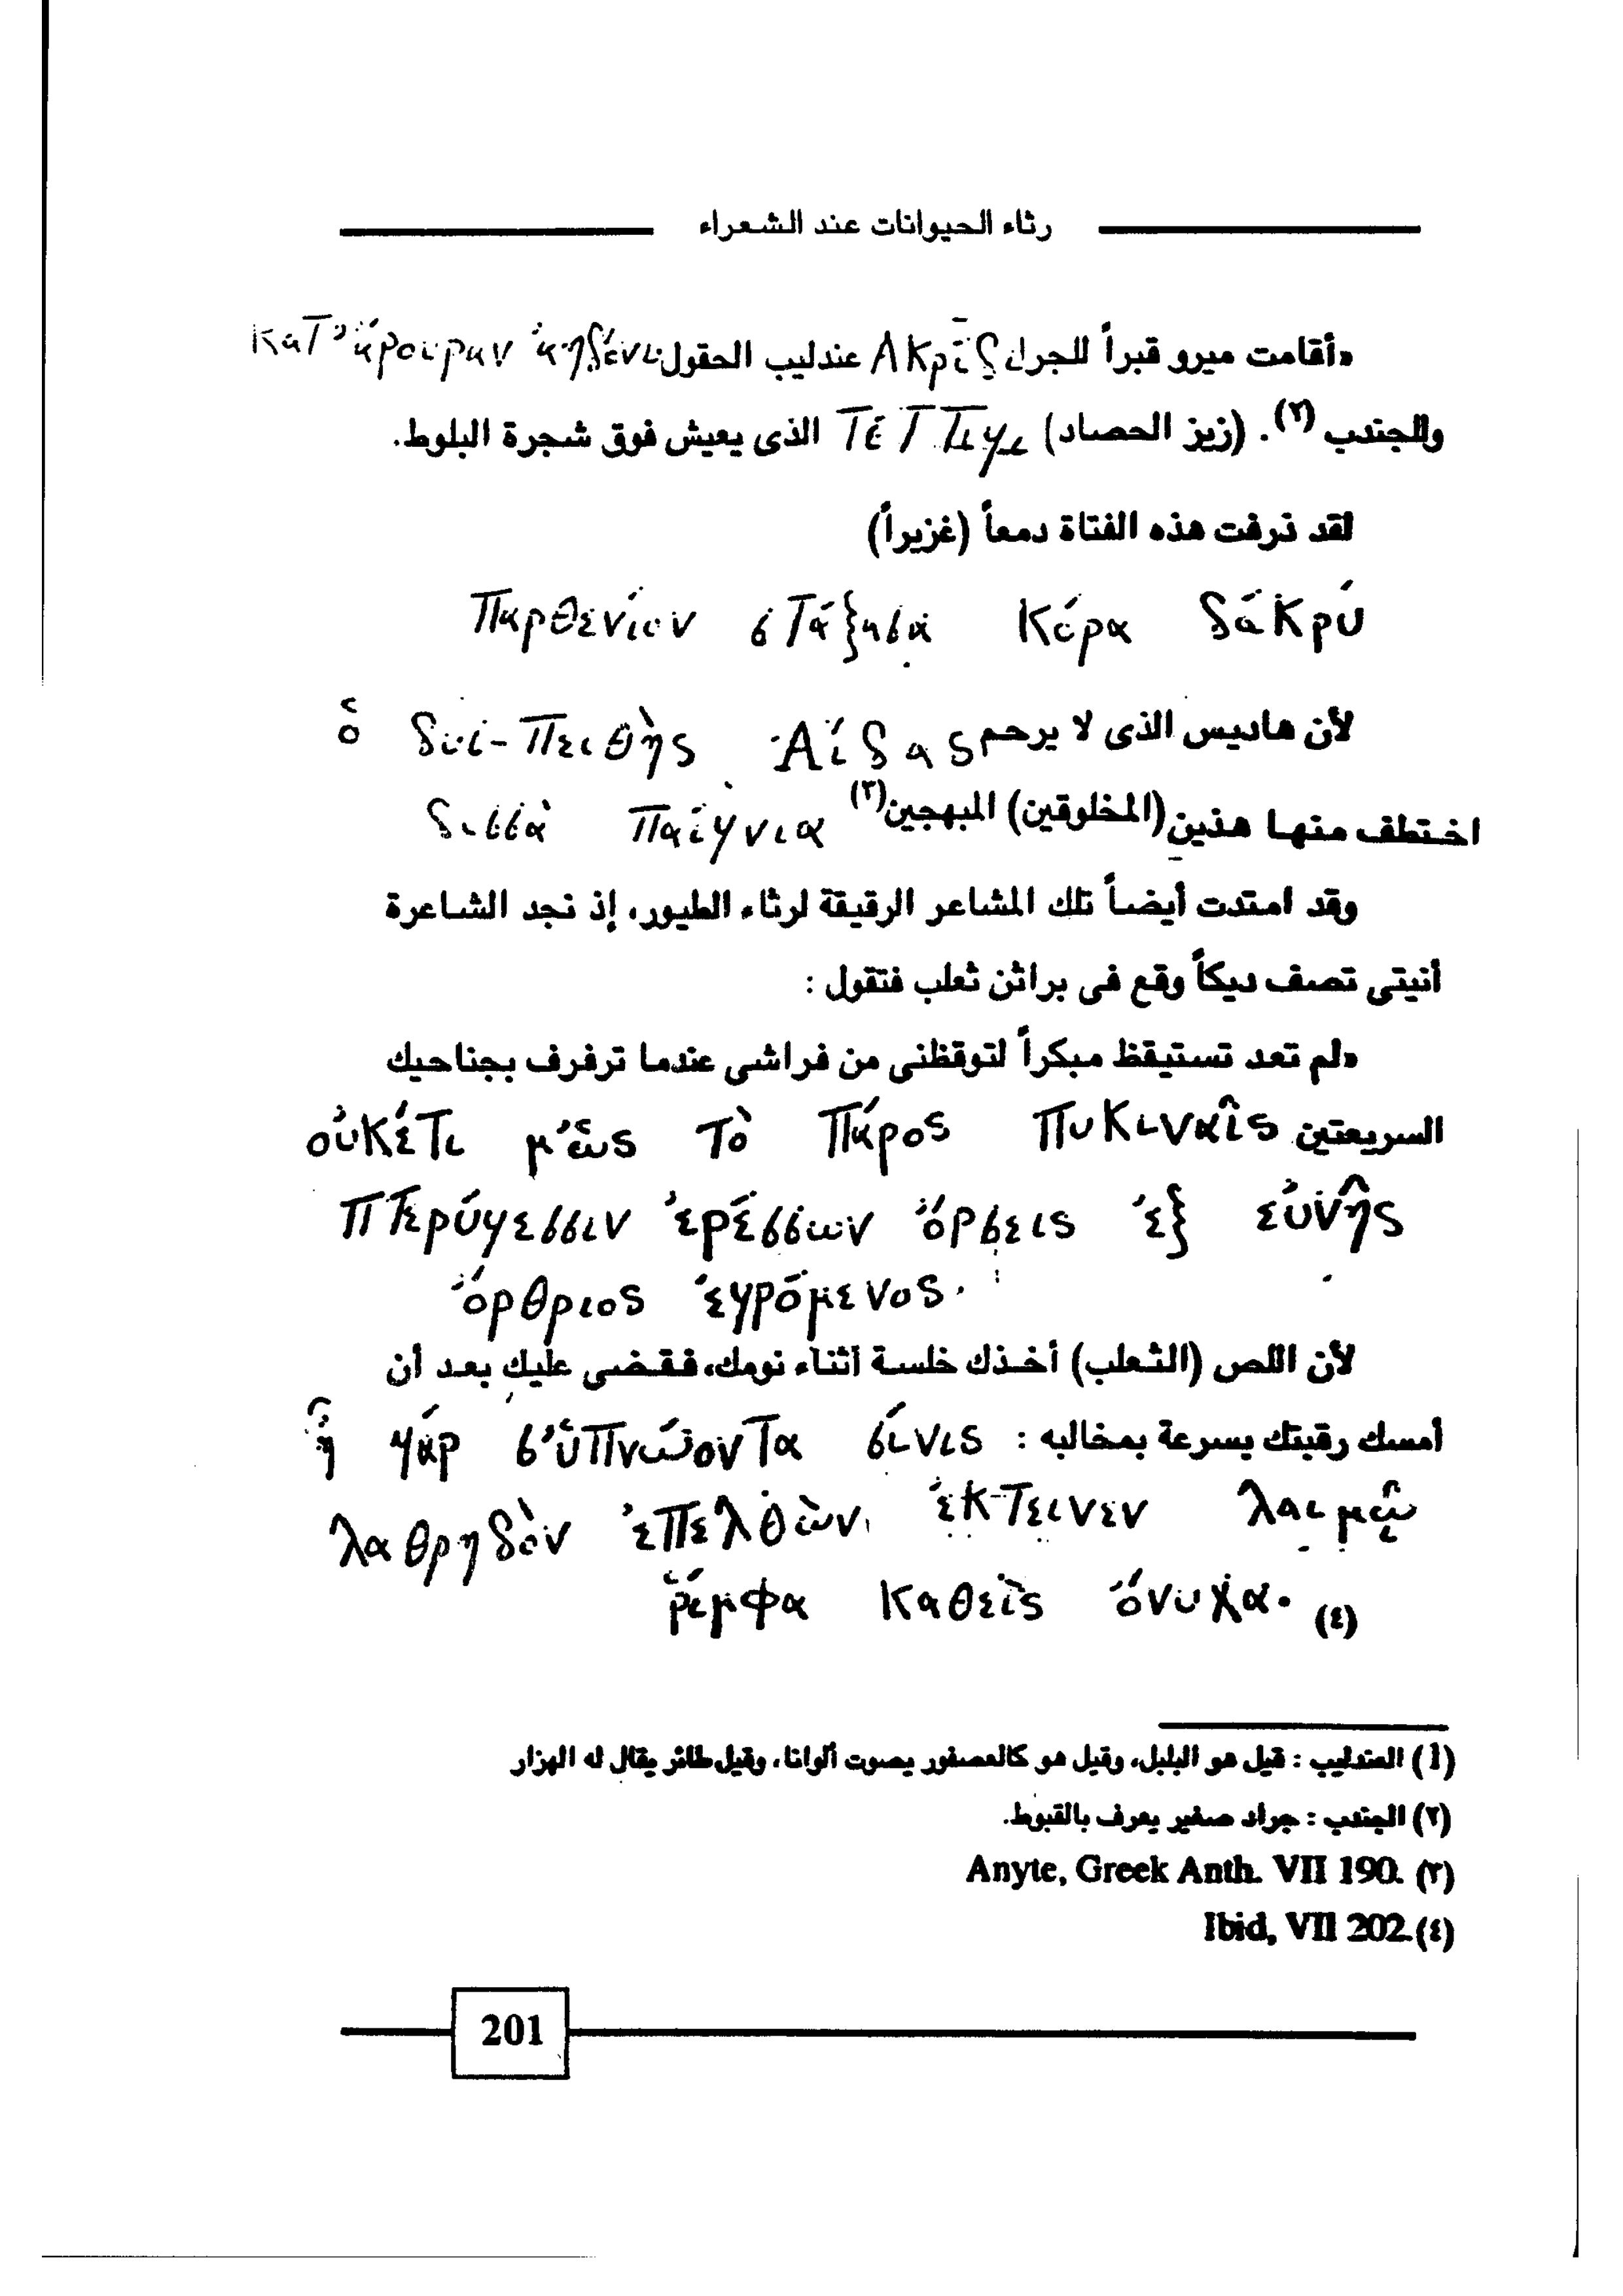 رثاء الحيوانات عند الشعراء
«أقامت ميرو قبراً للجراد Ακρίδι عندليب الحقول κατ' άρουραν αηδόνι
وللجندب (٢). (زيز الحصاد) τέττιγι الذى يعيش فوق شجرة البلوط.
لقد ذرفت هذه الفتاة دمعاً (غزيراً)
παρθένιον στάξασα κόρα δάκρυ
لأن هاديس الذى لا يرحم ὁ δυσ-πειθὴς Αίδας
اختطف منها هذين (المخلوقين) المبهجين (٣) δισσὰ παίγνια
وقد امتدت أيضاً تلك المشاعر الرقيقة لرثاء الطيور، إذ نجد الشاعرة
أنيتى تصف ديكاً وقع فى براثن ثعلب فتقول :
«لم تعد تستيقظ مبكراً لتوقظنى من فراشى عندما ترفرف بجناحيك
السريعتين οὐκέτι μ'ὡς τὸ πάρος πυκιναῖς
πτερύγεσσιν ἐρέσσων ὄρσεις ἐξ εὐνῆς
ὄρθριος ἐγρόμενος.
لأن اللص (الثعلب) أخذك خلسة أثناء نومك، فقضى عليك بعد أن
أمسك رقبتك بسرعة بمخالبه : ἦ γάρ σ'ὑπνώοντα σίνις
λαθρηδὸν ἐπελθὼν ἔκ-τεινεν λαιμῷ
ῥίμφα καθεὶς ὄνυχα. (٤)
(1) العندليب : قيل هو البلبل، وقيل هو كالعصفور يصوت ألوانا، وقيل طائر يقال له الهزار
(٢) الجندب : جراد صغير يعرف بالقبوط.
(٣) Anyte, Greek Anth. VII 190.
(٤) Ibid, VII 202.
201